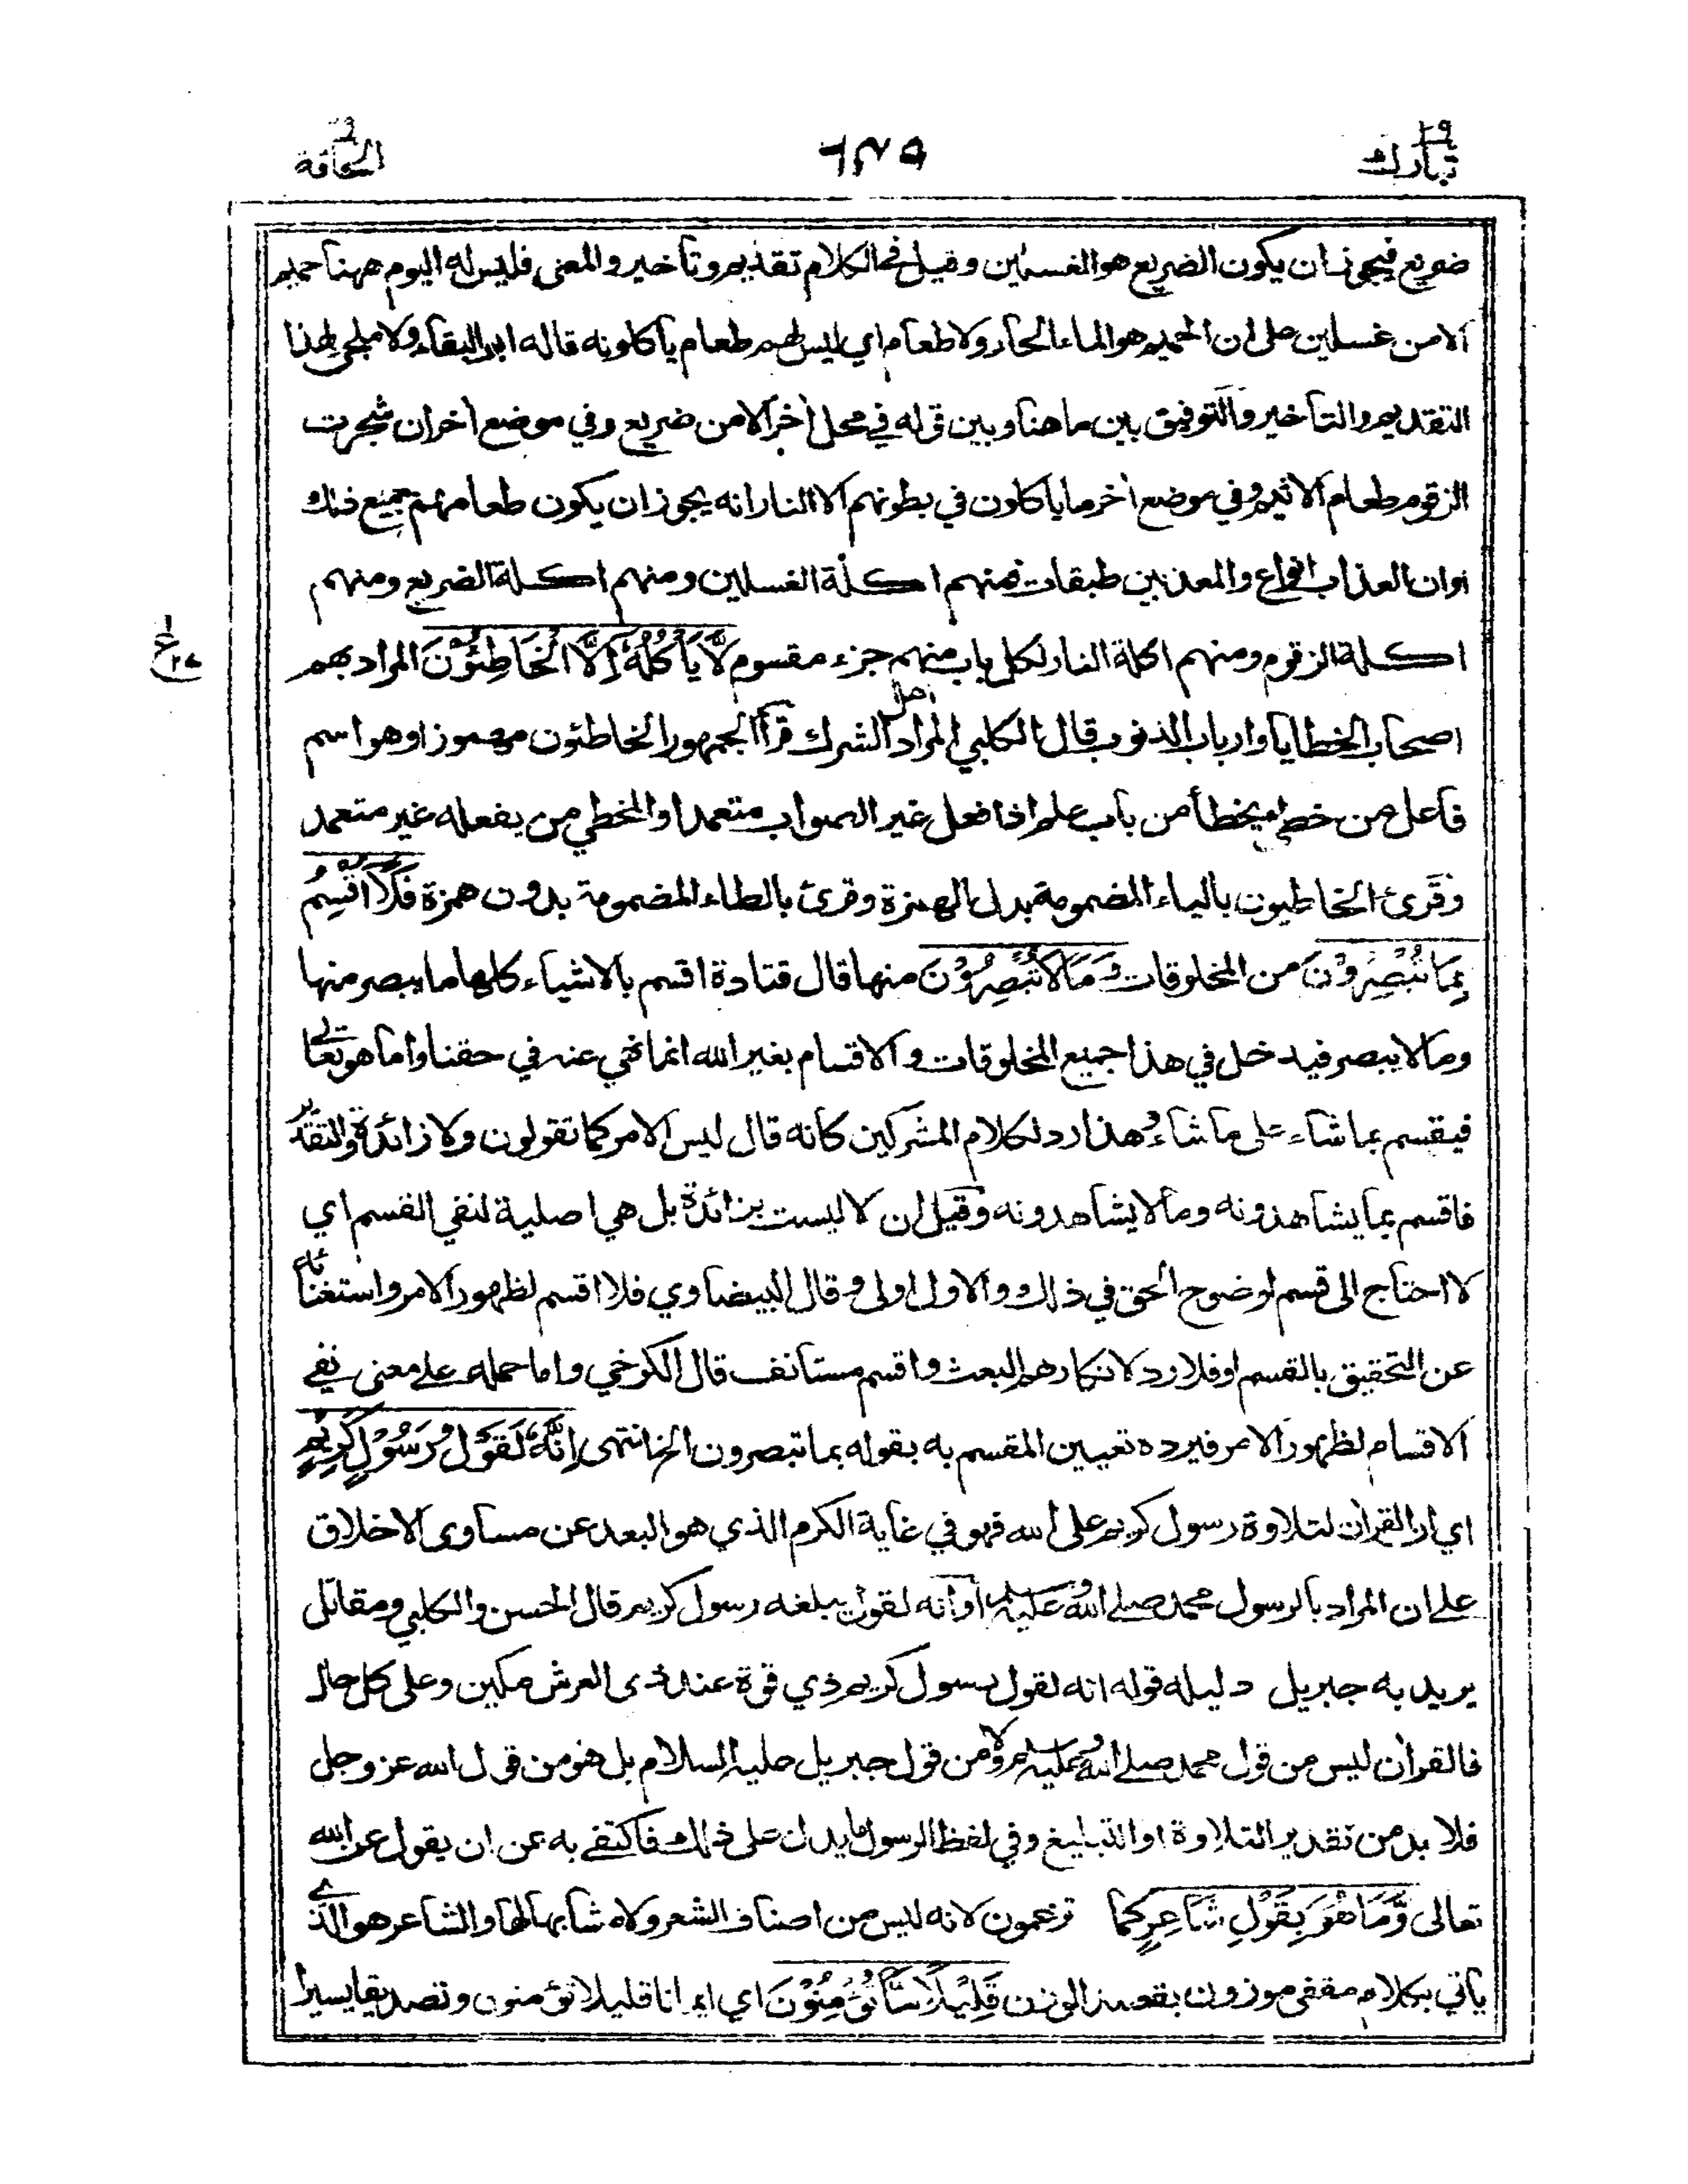 تبارك ٢٩
الحاقة
ضريع فيجوز ان يكون الضريع هو الغسلين وقيل في الكلام تقديم وتأخير والمعنى فليس له اليوم ههنا حميم
الا من غسلين على ان الحميم هو الماء الحار ولا طعام اي ليس لهم طعام يأكلونه قاله ابو البقاء ولا ملجئ لهذا
التقديم والتأخير والتوفيق بين ما هنا وبين قوله في محل أخر الا من ضريع وفي موضع أخر ان شجرت
الزقوم طعام الاثيم وفي موضع أخر ما يأكلون في بطونهم الا النار انه يجوز ان يكون طعامهم جميع ذلك
اوان العذاب انواع والمعذبين طبقات فمنهم اكلة الغسلين ومنهم اكلة الضريع ومنهم
اكلة الزقوم ومنهم اكلة النار لكل باب منهم جزء مقسوم لَّا يَأْكُلُهٗٓ اِلَّا الْخَاطِئُوْنَ المراد بهم
اصحاب الخطايا وارباب الذنوب قال الكلبي المراد اهل الشرك قرأ الجمهور الخاطئون مهموزا وهو اسم
فاعل من خطئ يخطأ من باب علم اذا فعل غير الصواب متعمدا والمخطي من يفعله غير متعمد
وقرئ الخاطيون بالياء المضمومة بدل الهمزة وقرئ بالطاء المضمومة بدون همزة فَلَآ اُقْسِمُ
بِمَا تُبْصِرُوْنَ من المخلوقات وَمَا لَا تُبْصِرُوْنَ منها قال قتادة اقسم بالاشياء كلها ما يبصر منها
وما لا يبصر فيدخل في هذا جميع المخلوقات والاقسام بغير الله انما نهي عنه في حقنا واما هو تعالى
فيقسم بما شاء على ما شاء وهذا رد لكلام المشركين كانه قال ليس الامر كما تقولون ولا زائدة والتقدير
فاقسم بما يشاهدونه وما لا يشاهدونه وقيل ان لا ليست بزائدة بل هي اصلية لنفي القسم اي
لا احتاج الى قسم لوضوح الحق في ذلك والاول اولى وقال البيضاوي فلا اقسم لظهور الامر واستغنائه
عن التحقيق بالقسم او فلا رد لانكارهم البعث واقسم مستانف قال الكرخي واما حمله على معنى نفي
الاقسام لظهور الامر فيرده تعيين المقسم به بقوله بما تبصرون الخ انتهى اِنَّهٗ لَقَوْلُ رَسُوْلٍ كَرِيْمٍ
اي ان القرأن لتلاوة رسول كريم على الله فهو في غاية الكرم الذي هو البعد عن مساوى الاخلاق
على ان المراد بالرسول محمد صلى الله عليه وسلم او انه لقول يبلغه رسول كريم قال الحسن والكلبي ومقاتل
يريد به جبريل دليله قوله انه لقول رسول كريم ذي قوة عند ذى العرش مكين وعلى كل حال
فالقرأن ليس من قول محمد صلى الله عليه وسلم ولا من قول جبريل عليه السلام بل هو من قول الله عز وجل
فلا بد من تقدير التلاوة او التبليغ وفي لفظ الرسول ما يدل على ذلك فاكتفى به عن ان يقول عن الله
تعالى وَّمَا هُوَ بِقَوْلِ شَاعِرٍ كما تزعمون لانه ليس من اصناف الشعر ولا مشابها لها والشاعر هو الذي
يأتي بكلام مقفى موزون بقصد الوزن قَلِيْلًا مَّا تُؤْمِنُوْنَ اي ايمانا قليلا تؤمنون وتصديقا يسيرا